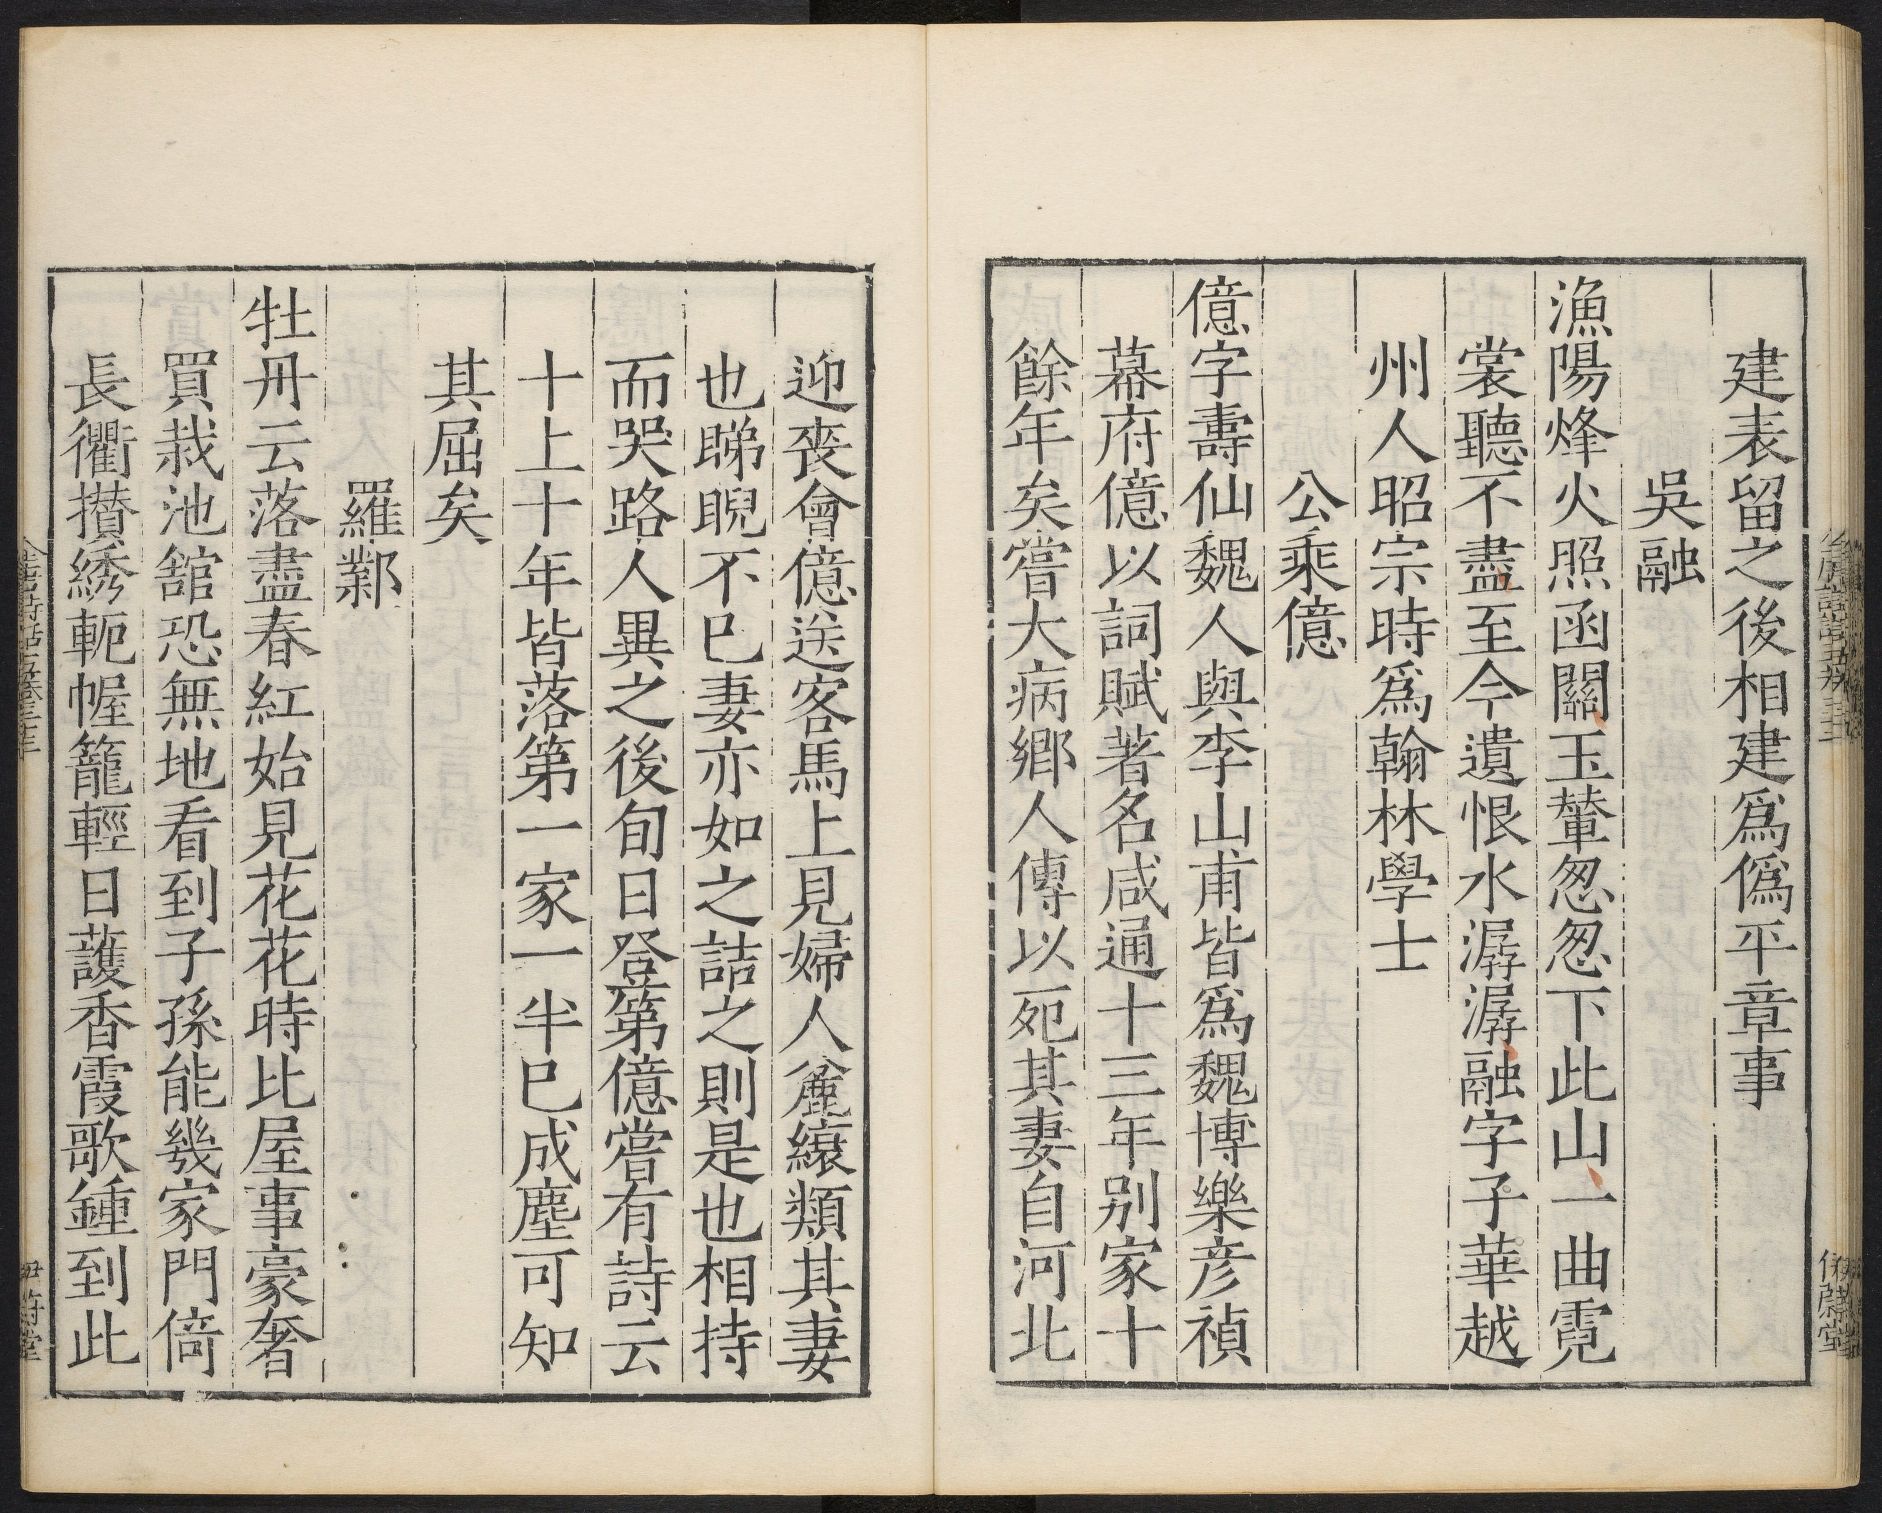 建表留之後相建爲僞平章事
吳融
漁陽烽火照函關玉輦怱怱下此山一曲霓
裳聽不盡至今遺恨水潺潺融字子華越
州人昭宗時爲翰林學士
公乘億
億字壽仙魏人與李山甫皆爲魏博樂彦禎
幕府億以詞賦著名咸通十三年别家十
餘年矣嘗大病鄉人傳以死其妻自河北
迎喪會億送客馬上見婦人麤縗類其妻
也睇睨不已妻亦如之詰之則是也相持
而哭路人異之後旬日登第億嘗有詩云
十上十年皆落第一家一半已成塵可知
其屈矣
羅鄴
牡丹云落盡春紅始見花花時比屋事豪奢
買栽池舘恐無地看到子孫能幾家門倚
長衢攅綉軛幄籠輕日護香霞歌鍾到此